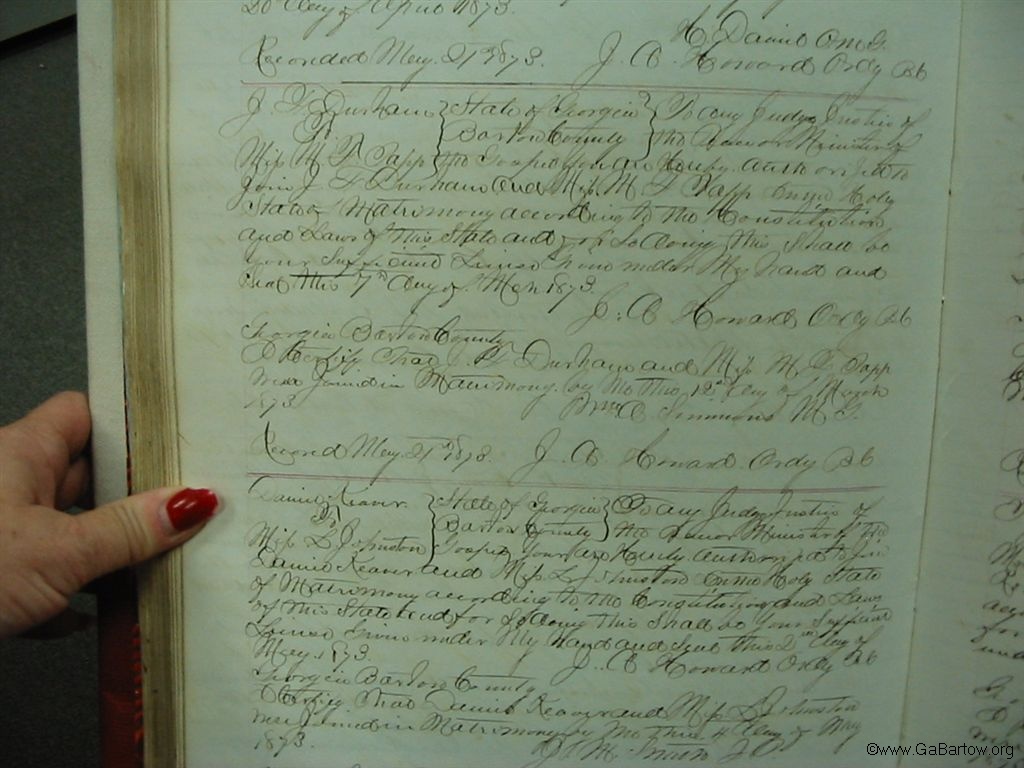 day of April 1873.
H. David
Recorded May 21st 1873. J. A. Howard Ordy B C
J. F. Durham } State of Georgia } To any Judge Justice of
To } Bartow County } the Peace or Minister of
Miss M. F. Papp the Gospel you are Hereby authorized to
join J. F. Durham and Miss M. F. Papp in the Holy
State of Matrimony according to the Constitution
and Laws of this State and for so doing this Shall be
your Sufficient License Given under My Hand and
Seal this 7th day of 1873.
J. A. Howard Ordy B C
Georgia Bartow County
I Certify that F. Durham and Miss M. F. Papp
were Joined in Matrimony by Me this 12th day of March
1873 Simmons M. G.
Record May 21st 1873. J. A. Howard Ordy B C
David Keaver } State of Georgia } To any Judge Justice of
To } Bartow County } the Peace or Minister of the
Miss L Johnston Gospel you are Hereby authorized to Join
David Keaver and Miss L Johnston in the Holy State
of Matrimony according to the Constitution and Laws
of this State and for So doing this Shall be your Sufficient
License Given under My Hand and Seal this 2nd day of
May 1873. J. A. Howard Ordy B C
Georgia Bartow County
I Certify that David Keaver and Miss L Johnston
were Joined in Matrimony by Me this 4 day of May
1873. J. H. Smith J.P.
©www.GaBartow.org